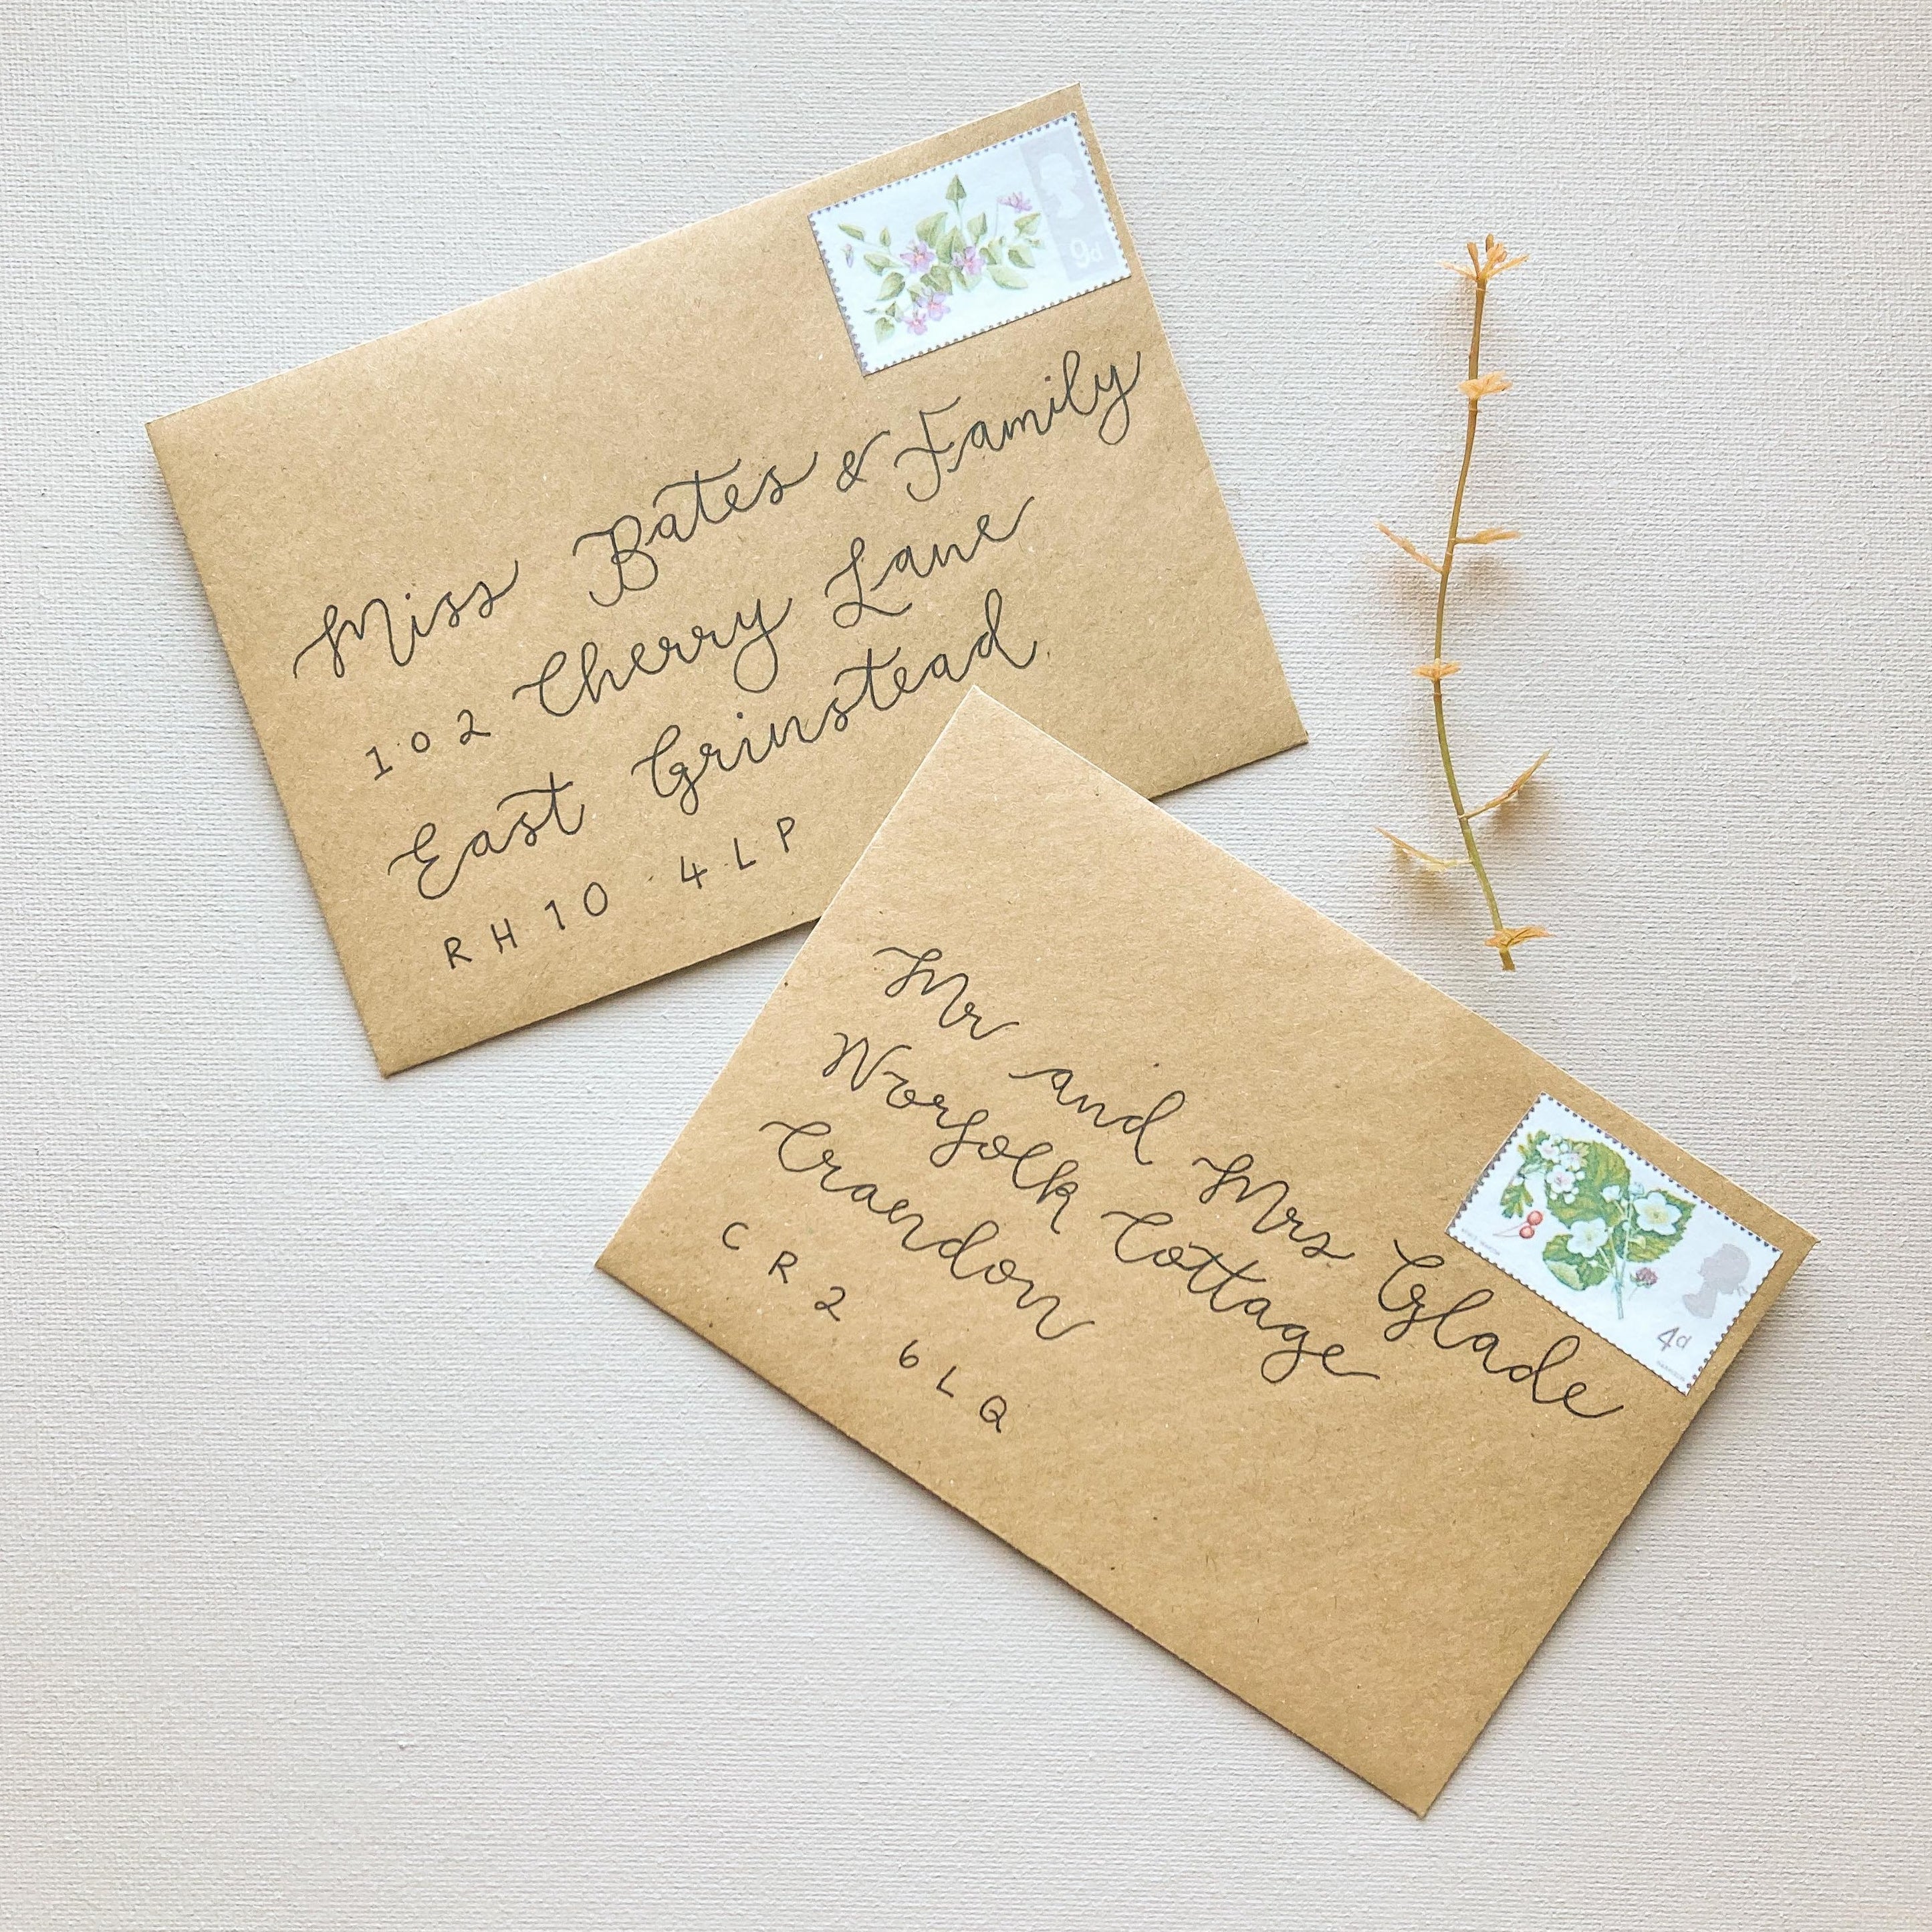 9d
Miss Bates & Family
102 Cherry Lane
East Grinstead
RH10 4LP
4d
Mr and Mrs Glade
Norfolk Cottage
Craendon
CR2 6LQ